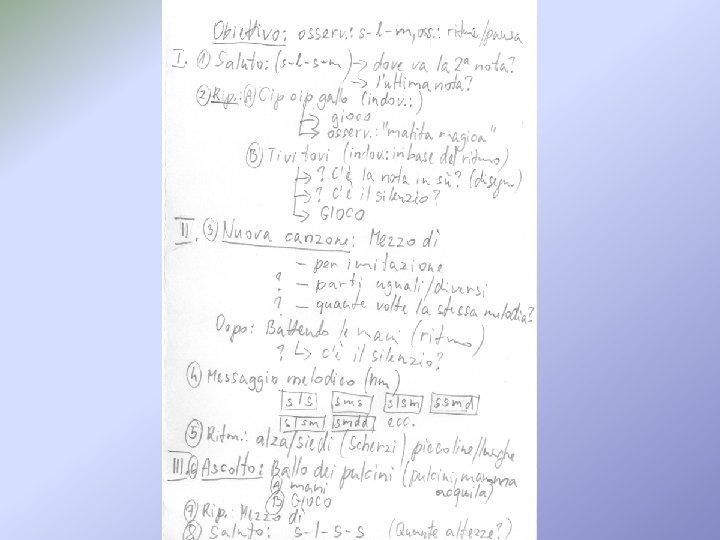 Obiettivo: osserv.: s-l-m, oss.: ritmo/pausa
I. ① Saluto: (s-l-s-m) → dove va la 2ª nota?
→ l'ultima nota?
② Rip.: Ⓐ Cip cip gallo (indov.:)
↳ gioco
↳ osserv.: "matita magica"
Ⓑ Tivitovi (indov: in base del ritmo)
↳ ? C'è la nota in sù? (disegno)
↳ ? C'è il silenzio?
↳ GIOCO
II. ③ Nuova canzone: Mezzo dì
- per imitazione
? - parti uguali/diversi
? - quante volte la stessa melodia?
Dopo: Battendo le mani (ritmo)
? ↳ c'è il silenzio?
④ Messaggio melodico (hm)
sls sms slsm ssmd
slsm smdd ecc.
⑤ Ritm.: alza/siedi (scherzi) piccoline/lunghe
III. ⑥ Ascolto: Ballo dei pulcini (pulcini, mamma
Ⓐ mani acquila)
Ⓑ GIOCO
⑦ Rip.: Mezzo dì
⑧ Saluto: s-l-s-s (Quante altezze?)